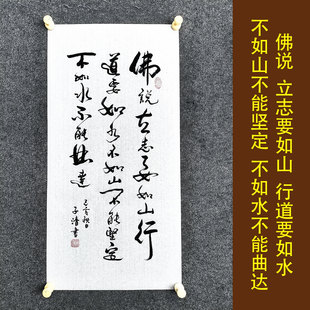 佛説立志要如山行
道要如水不如山不能堅定
不如水不能曲達
佛说 立志要如山 行道要如水
不如山不能坚定 不如水不能曲达